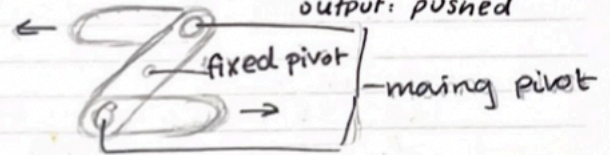 output: pushed
fixed pivot
maing pivot